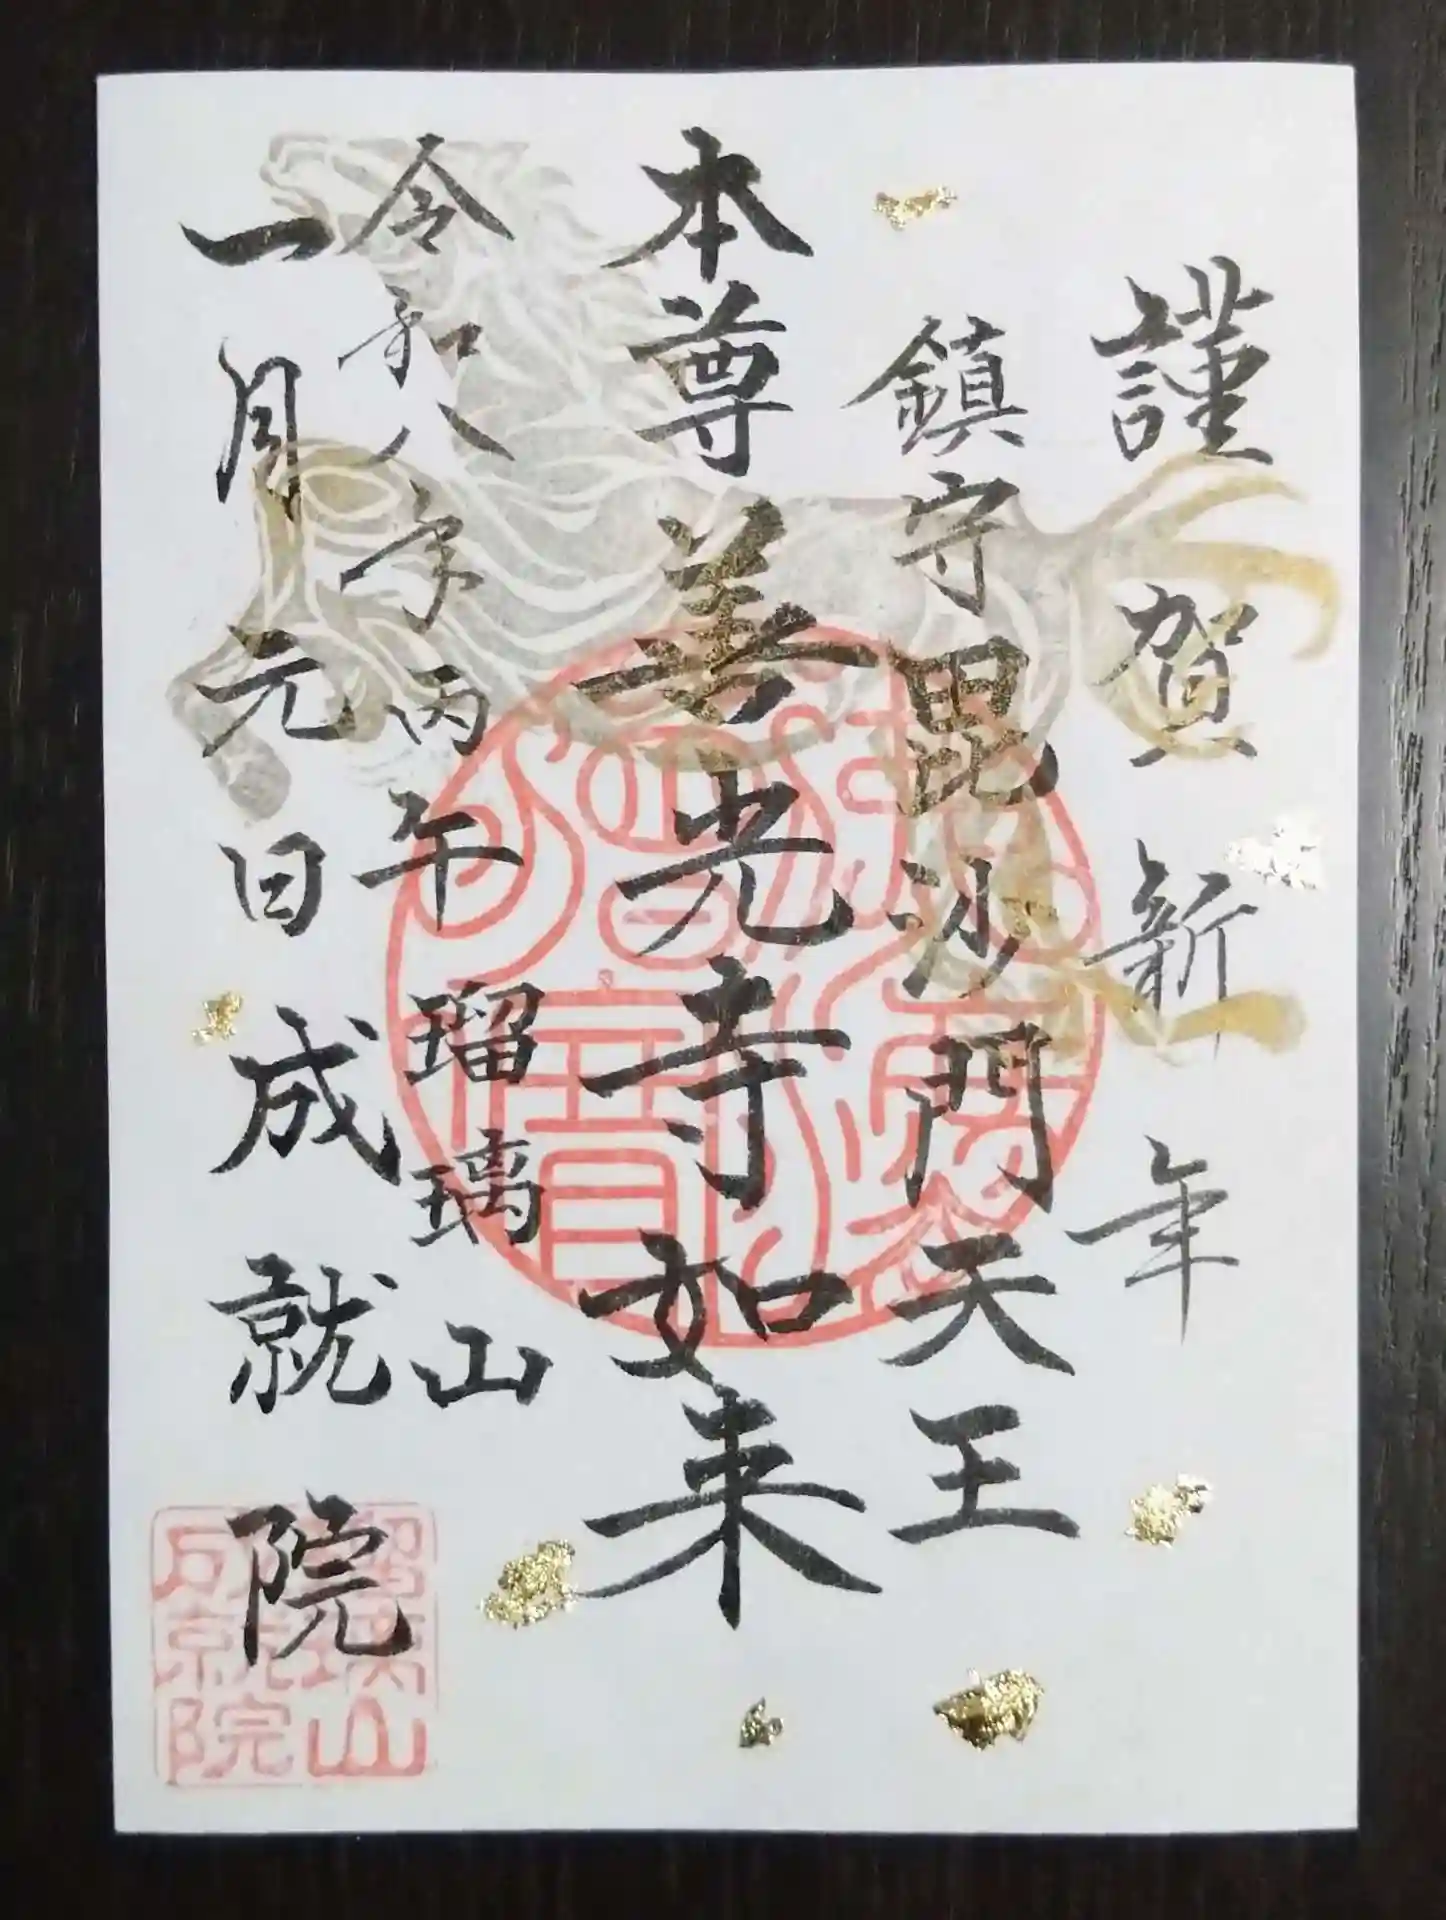 謹賀新年
鎮守毘沙門天王
本尊善光寺如来
令和八年丙午
一月元日
瑠璃山
成就院
瑠璃山
成就院